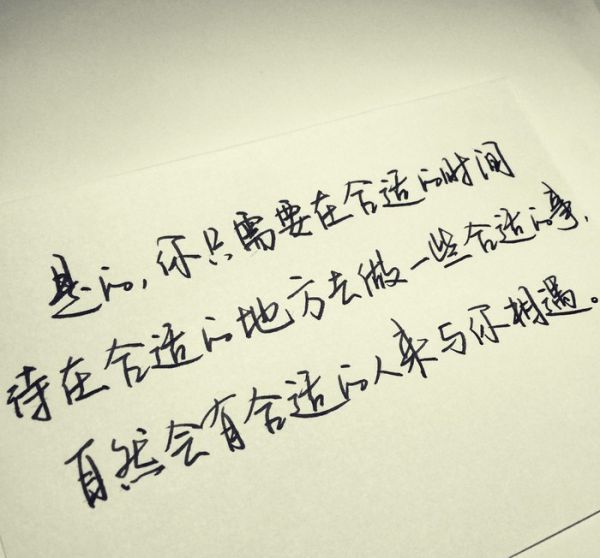 是的,你只需要在合适的时间
待在合适的地方去做一些合适的事,
自然会有合适的人来与你相遇。